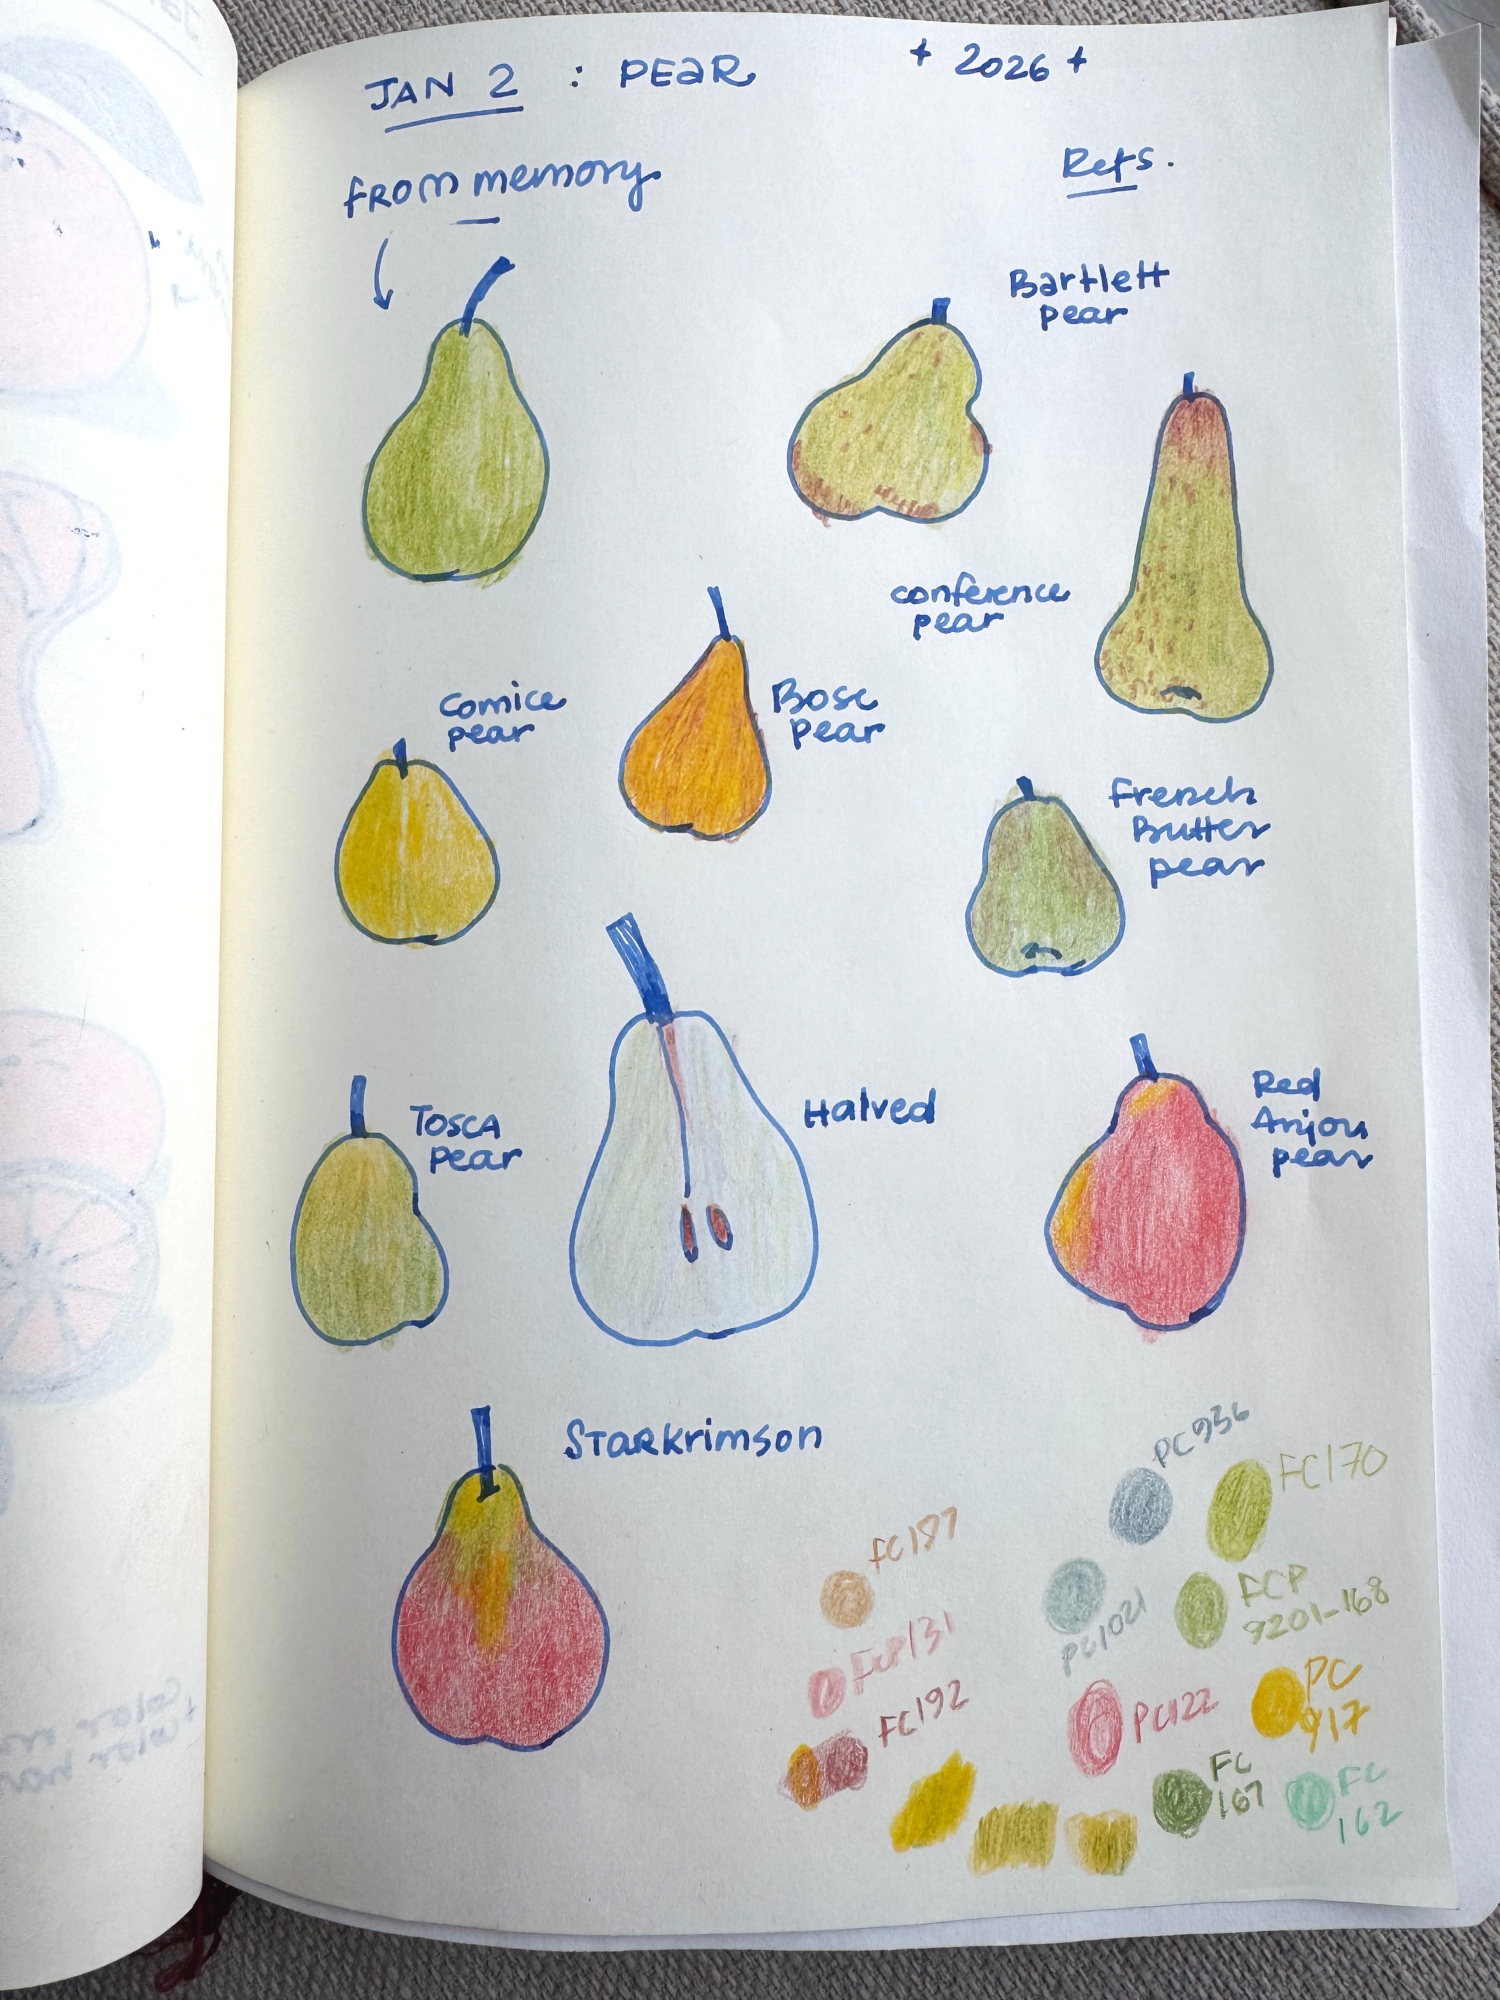 JAN 2 : PEAR
+ 2026 +
from memory
Refs.
Bartlett
pear
conference
pear
Comice
pear
Bosc
pear
French
Butter
pear
Tosca
Pear
Halved
Red
Anjou
pear
Starkrimson
PC936
FC170
FC187
PC1021
FCP
9201-168
FCP131
FC192
PC122
PC
917
FC
167
FC
162